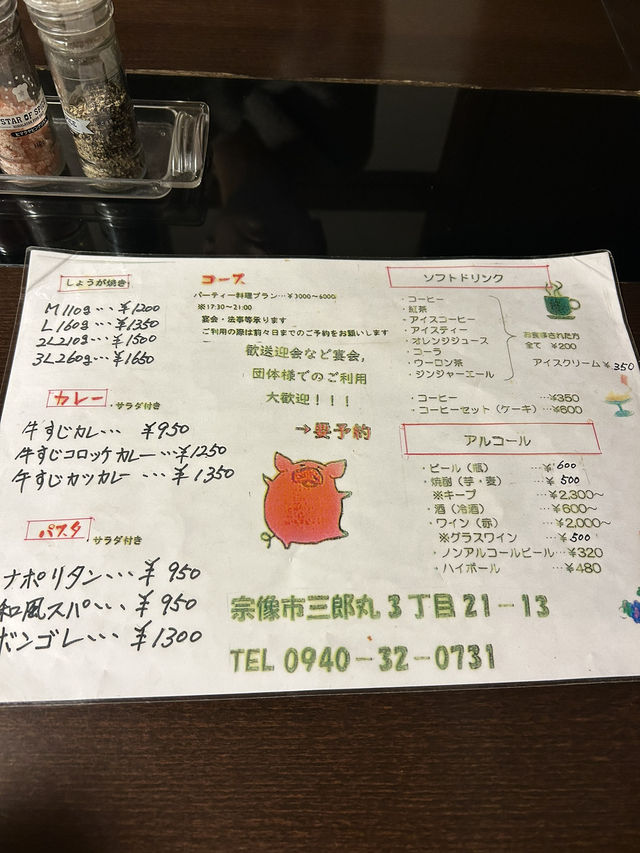 STAR OF SP
しょうが焼き
M 110g…¥1200
L 160g…¥1350
2L 210g…¥1500
3L 260g…¥1650
カレー ・サラダ付き
牛すじカレー… ¥950
牛すじコロッケカレー…¥1250
牛すじカツカレー…¥1350
パスタ ・サラダ付き
ナポリタン…¥950
和風スパ…¥950
ボンゴレ…¥1300
コース
パーティー料理プラン…¥3000～6000
※17:30～21:00
宴会・法事等承ります
ご利用の際は前々日までのご予約をお願いします
歓送迎会など宴会,
団体様でのご利用
大歓迎！！！
→要予約
宗像市三郎丸3丁目21-13
TEL 0940-32-0731
ソフトドリンク
・コーヒー
・紅茶
・アイスコーヒー
・アイスティー
・オレンジジュース
・コーラ
・ウーロン茶
・ジンジャーエール
お食事された方
全て ¥200
アイスクリーム¥350
・コーヒー …¥350
・コーヒーセット（ケーキ）…¥600
アルコール
・ビール（瓶） …¥600
・焼酎（芋・麦） …¥500
※キープ …¥2,300～
・酒（冷酒） …¥600～
・ワイン（赤） …¥2,000～
※グラスワイン …¥500
・ノンアルコールビール…¥320
・ハイボール …¥480